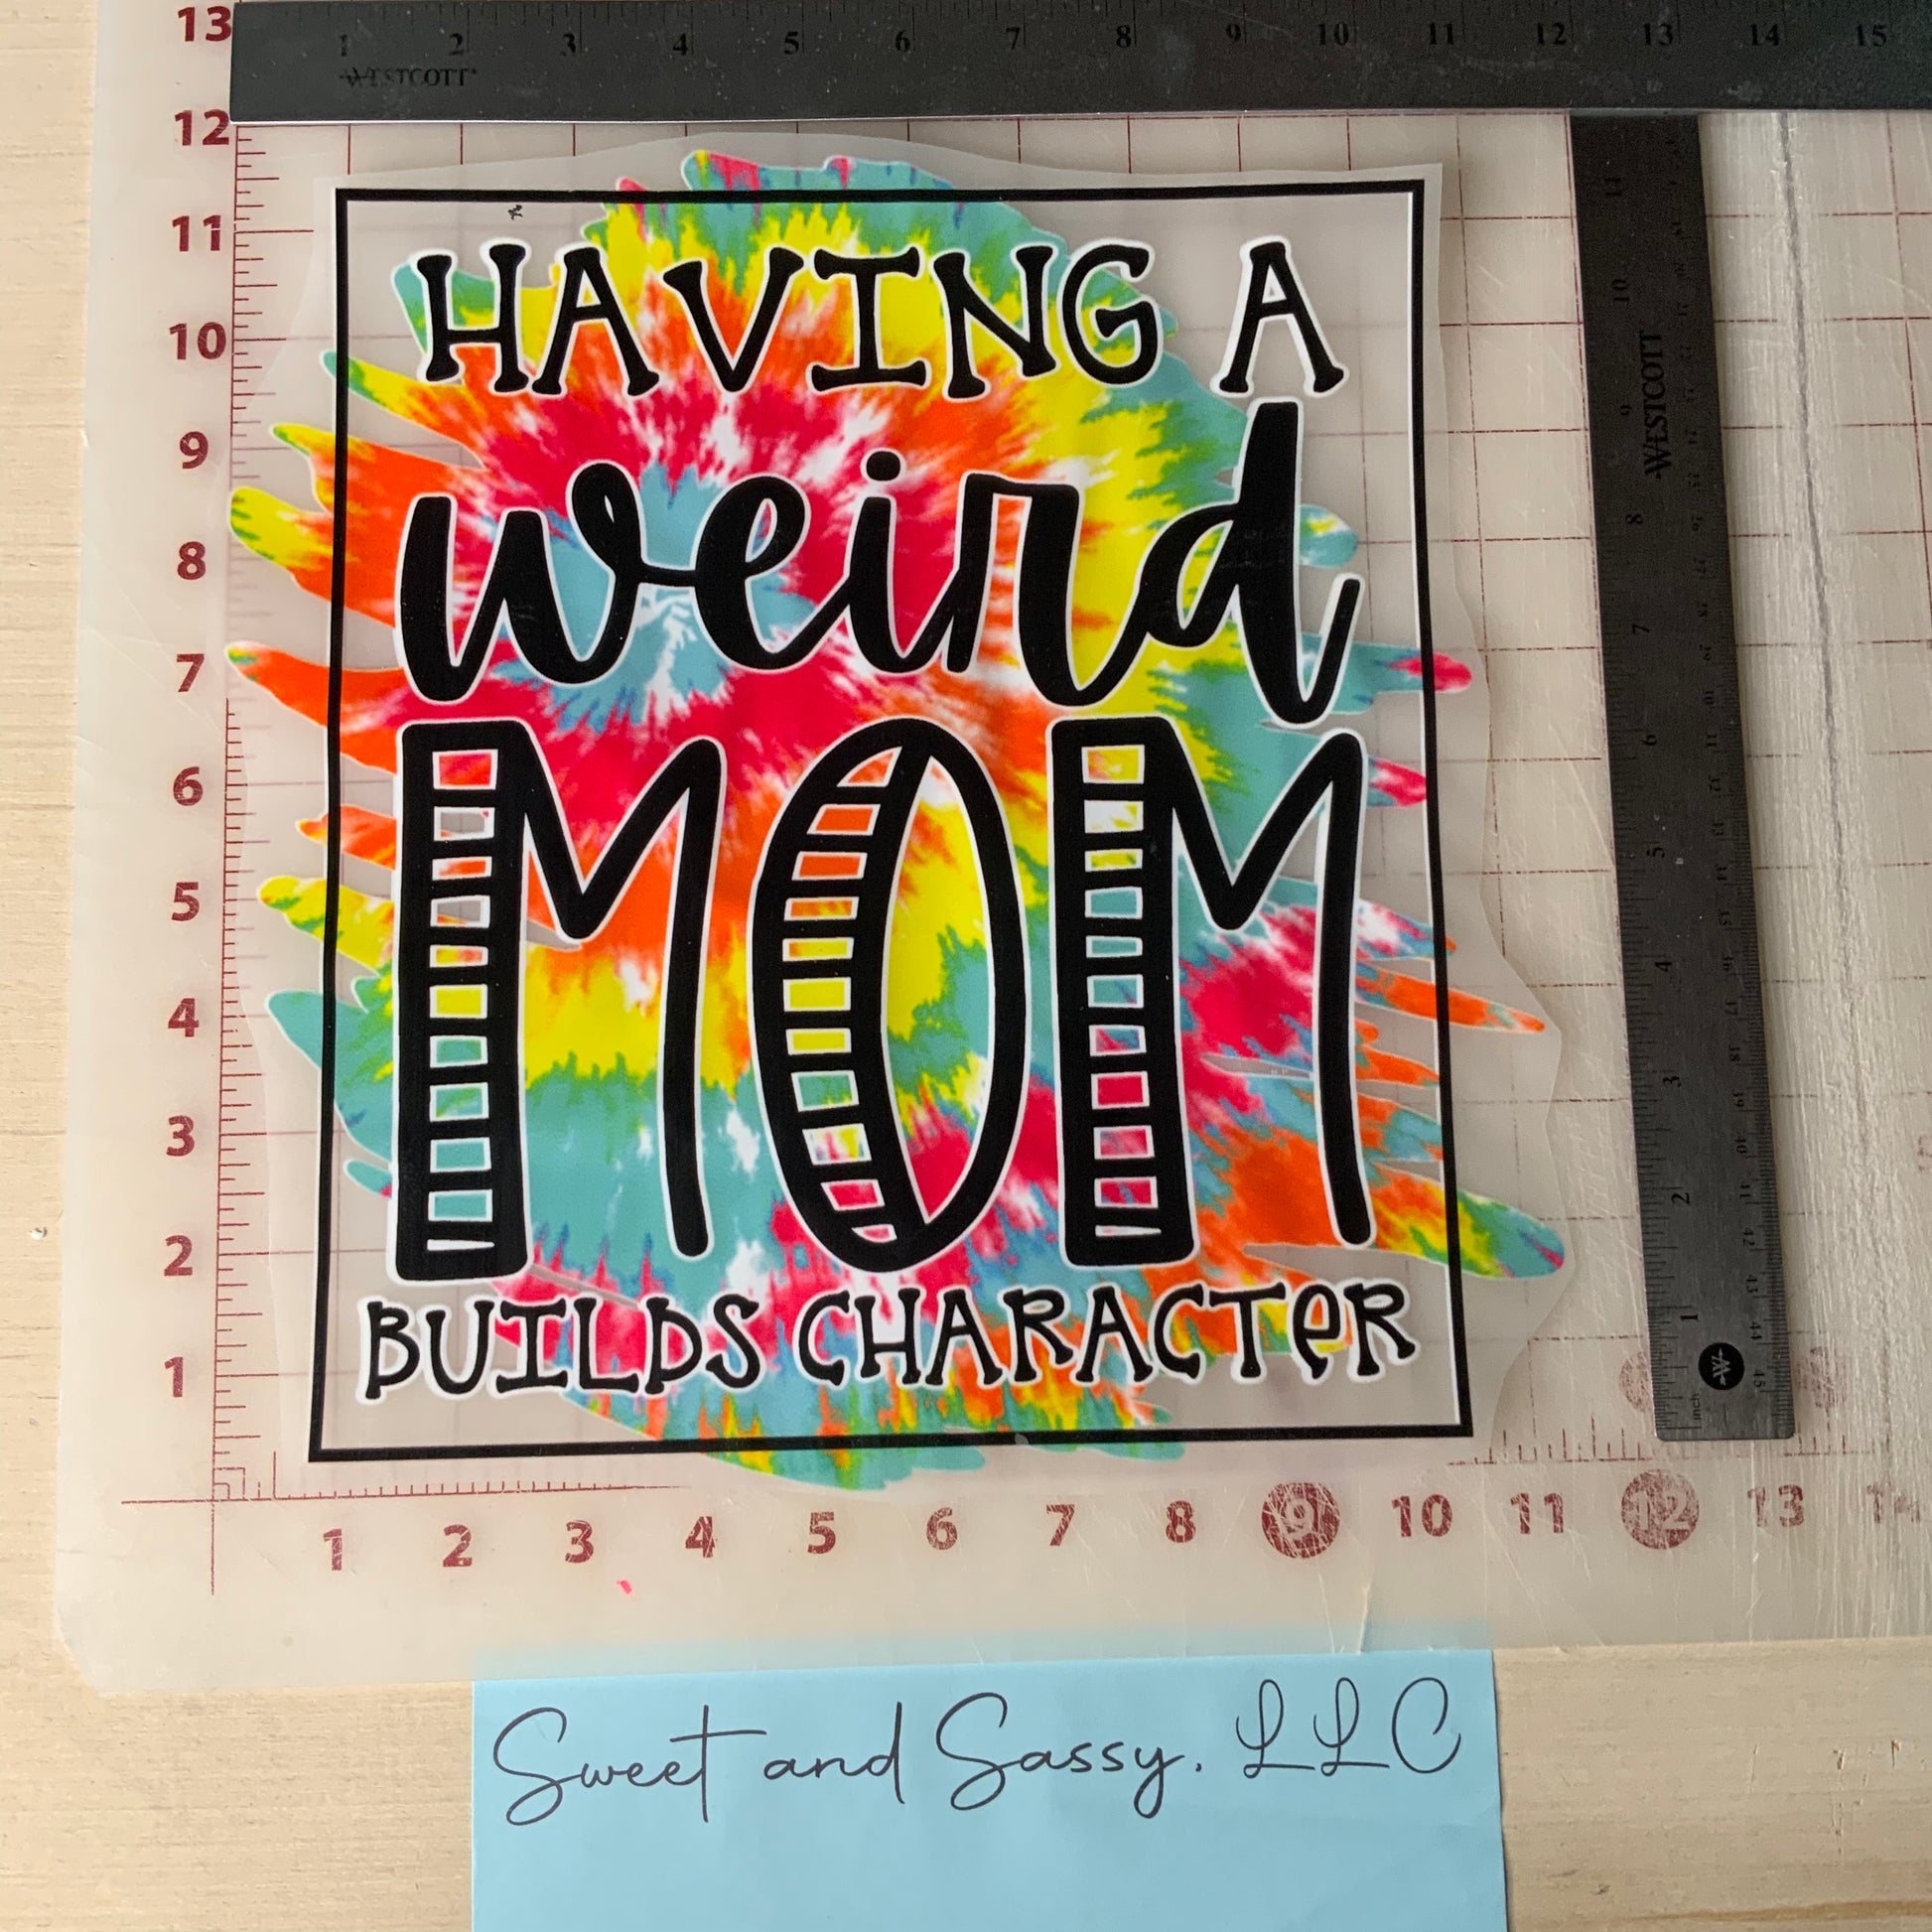 13 1 2 3 4 5 6 7 8 9 10 11 12 13 14 15
WESTCOTT
12
11
10
9
8
7
6
5
4
3
2
1
HAVING A
weird
MOM
BUILDS CHARACTeR
11
10
9
WESTCOTT
8
7
6
5
4
3
2
1
inch
W
1 2 3 4 5 6 7 8 9 10 11 12 13 14
Sweet and Sassy, LLC